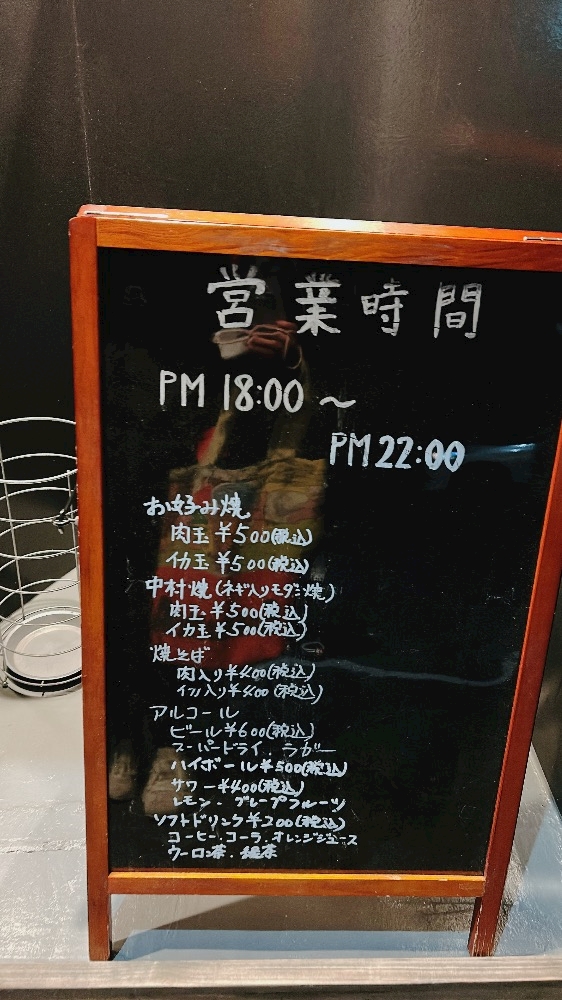 営業時間
PM 18:00 〜
PM 22:00
お好み焼
肉玉 ¥500(税込)
イカ玉 ¥500(税込)
中村焼(ネギ入りモダン焼)
肉玉 ¥500(税込)
イカ玉 ¥500(税込)
焼そば
肉入り ¥400(税込)
イカ入り ¥400(税込)
アルコール
ビール ¥600(税込)
スーパードライ. ラガー
ハイボール ¥500(税込)
サワー ¥400(税込)
レモン. グレープフルーツ
ソフトドリンク ¥200(税込)
コーヒー. コーラ. オレンジジュース
ウーロン茶. 緑茶